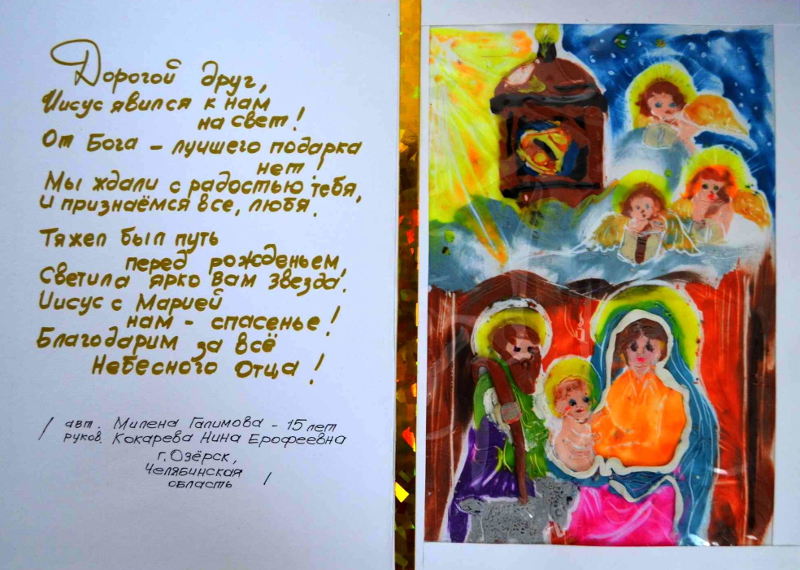 Дорогой друг,
Иисус явился к нам
на свет!
От Бога – лучшего подарка
нет!
Мы ждали с радостью тебя,
И признаёмся все, любя.
Тяжел был путь
перед рожденьем,
Светила ярко вам звезда.
Иисус с Марией
нам – спасенье!
Благодарим за всё
Небесного Отца!
/ авт. Милена Галимова – 15 лет
руков. Кокарева Нина Ерофеевна
г. Озёрск,
Челябинская
область /